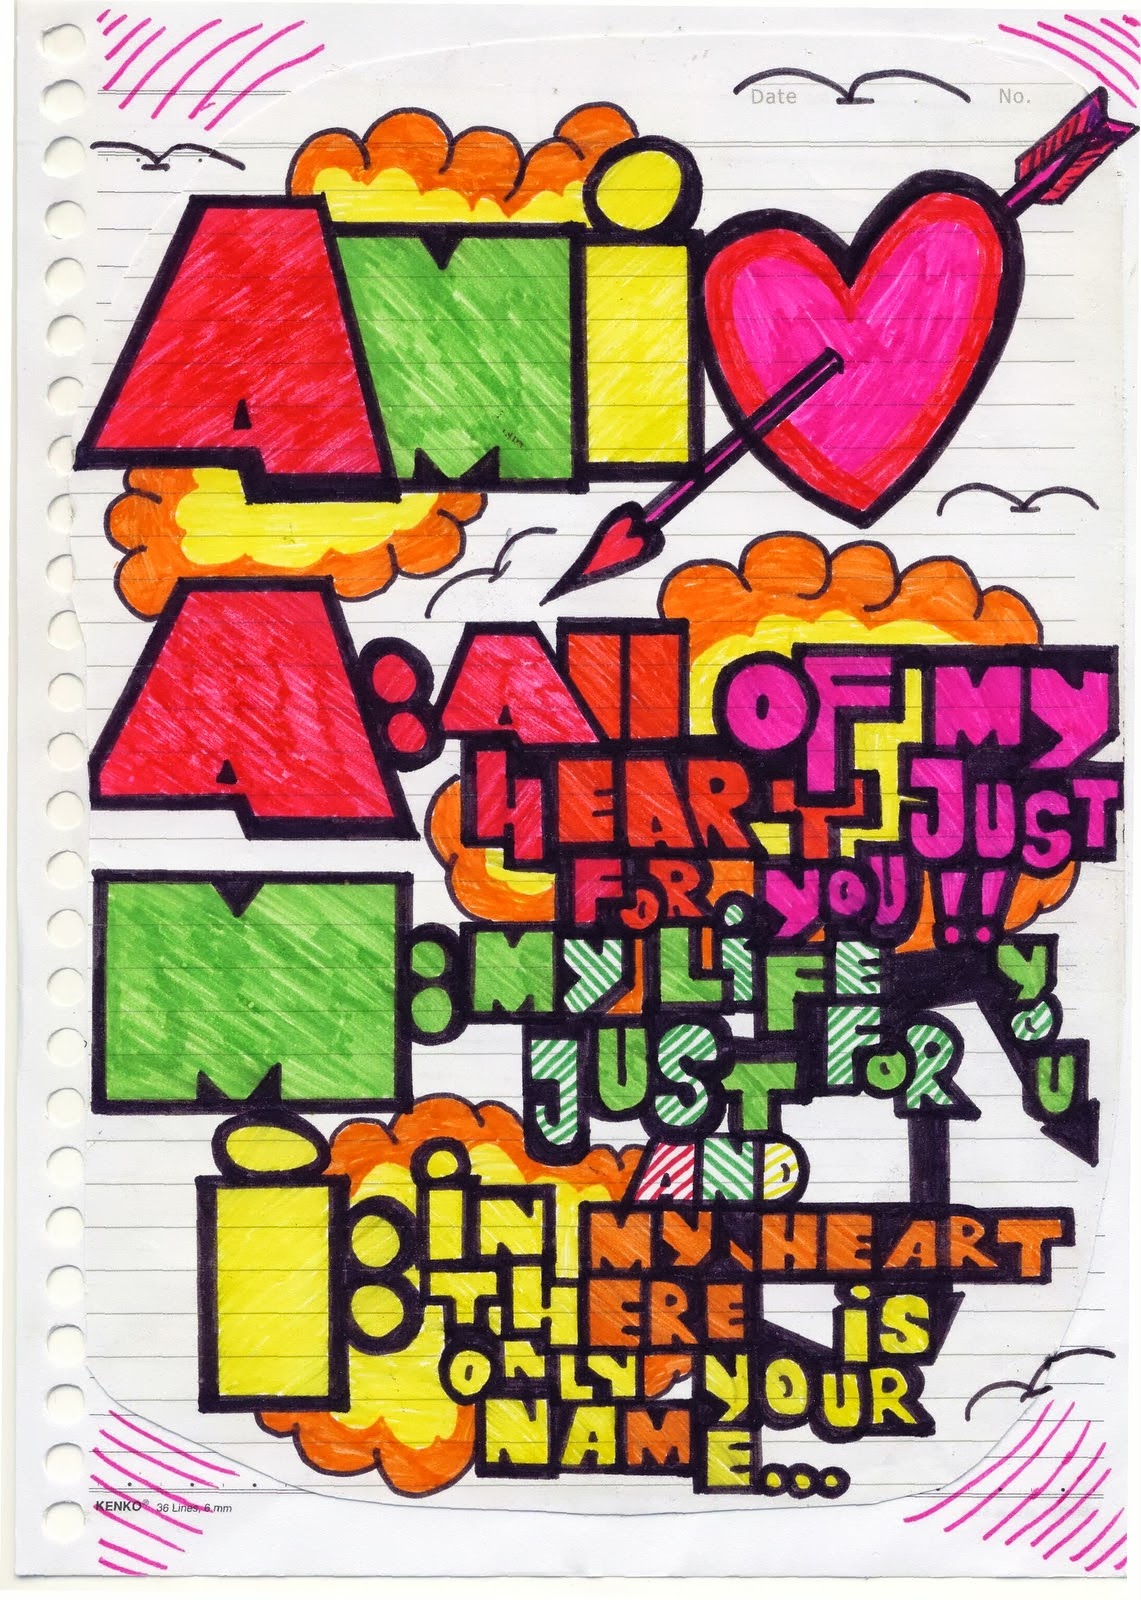 Date No.
AMi
A: All OF MY
HEART JUST
FOR YOU!!
M: MY LiFE YOU
JUST FOR
AND
i: iN MY HEART
THERE iS
ONLY YOUR
NAME....
KENKO® 36 Lines, 6 mm